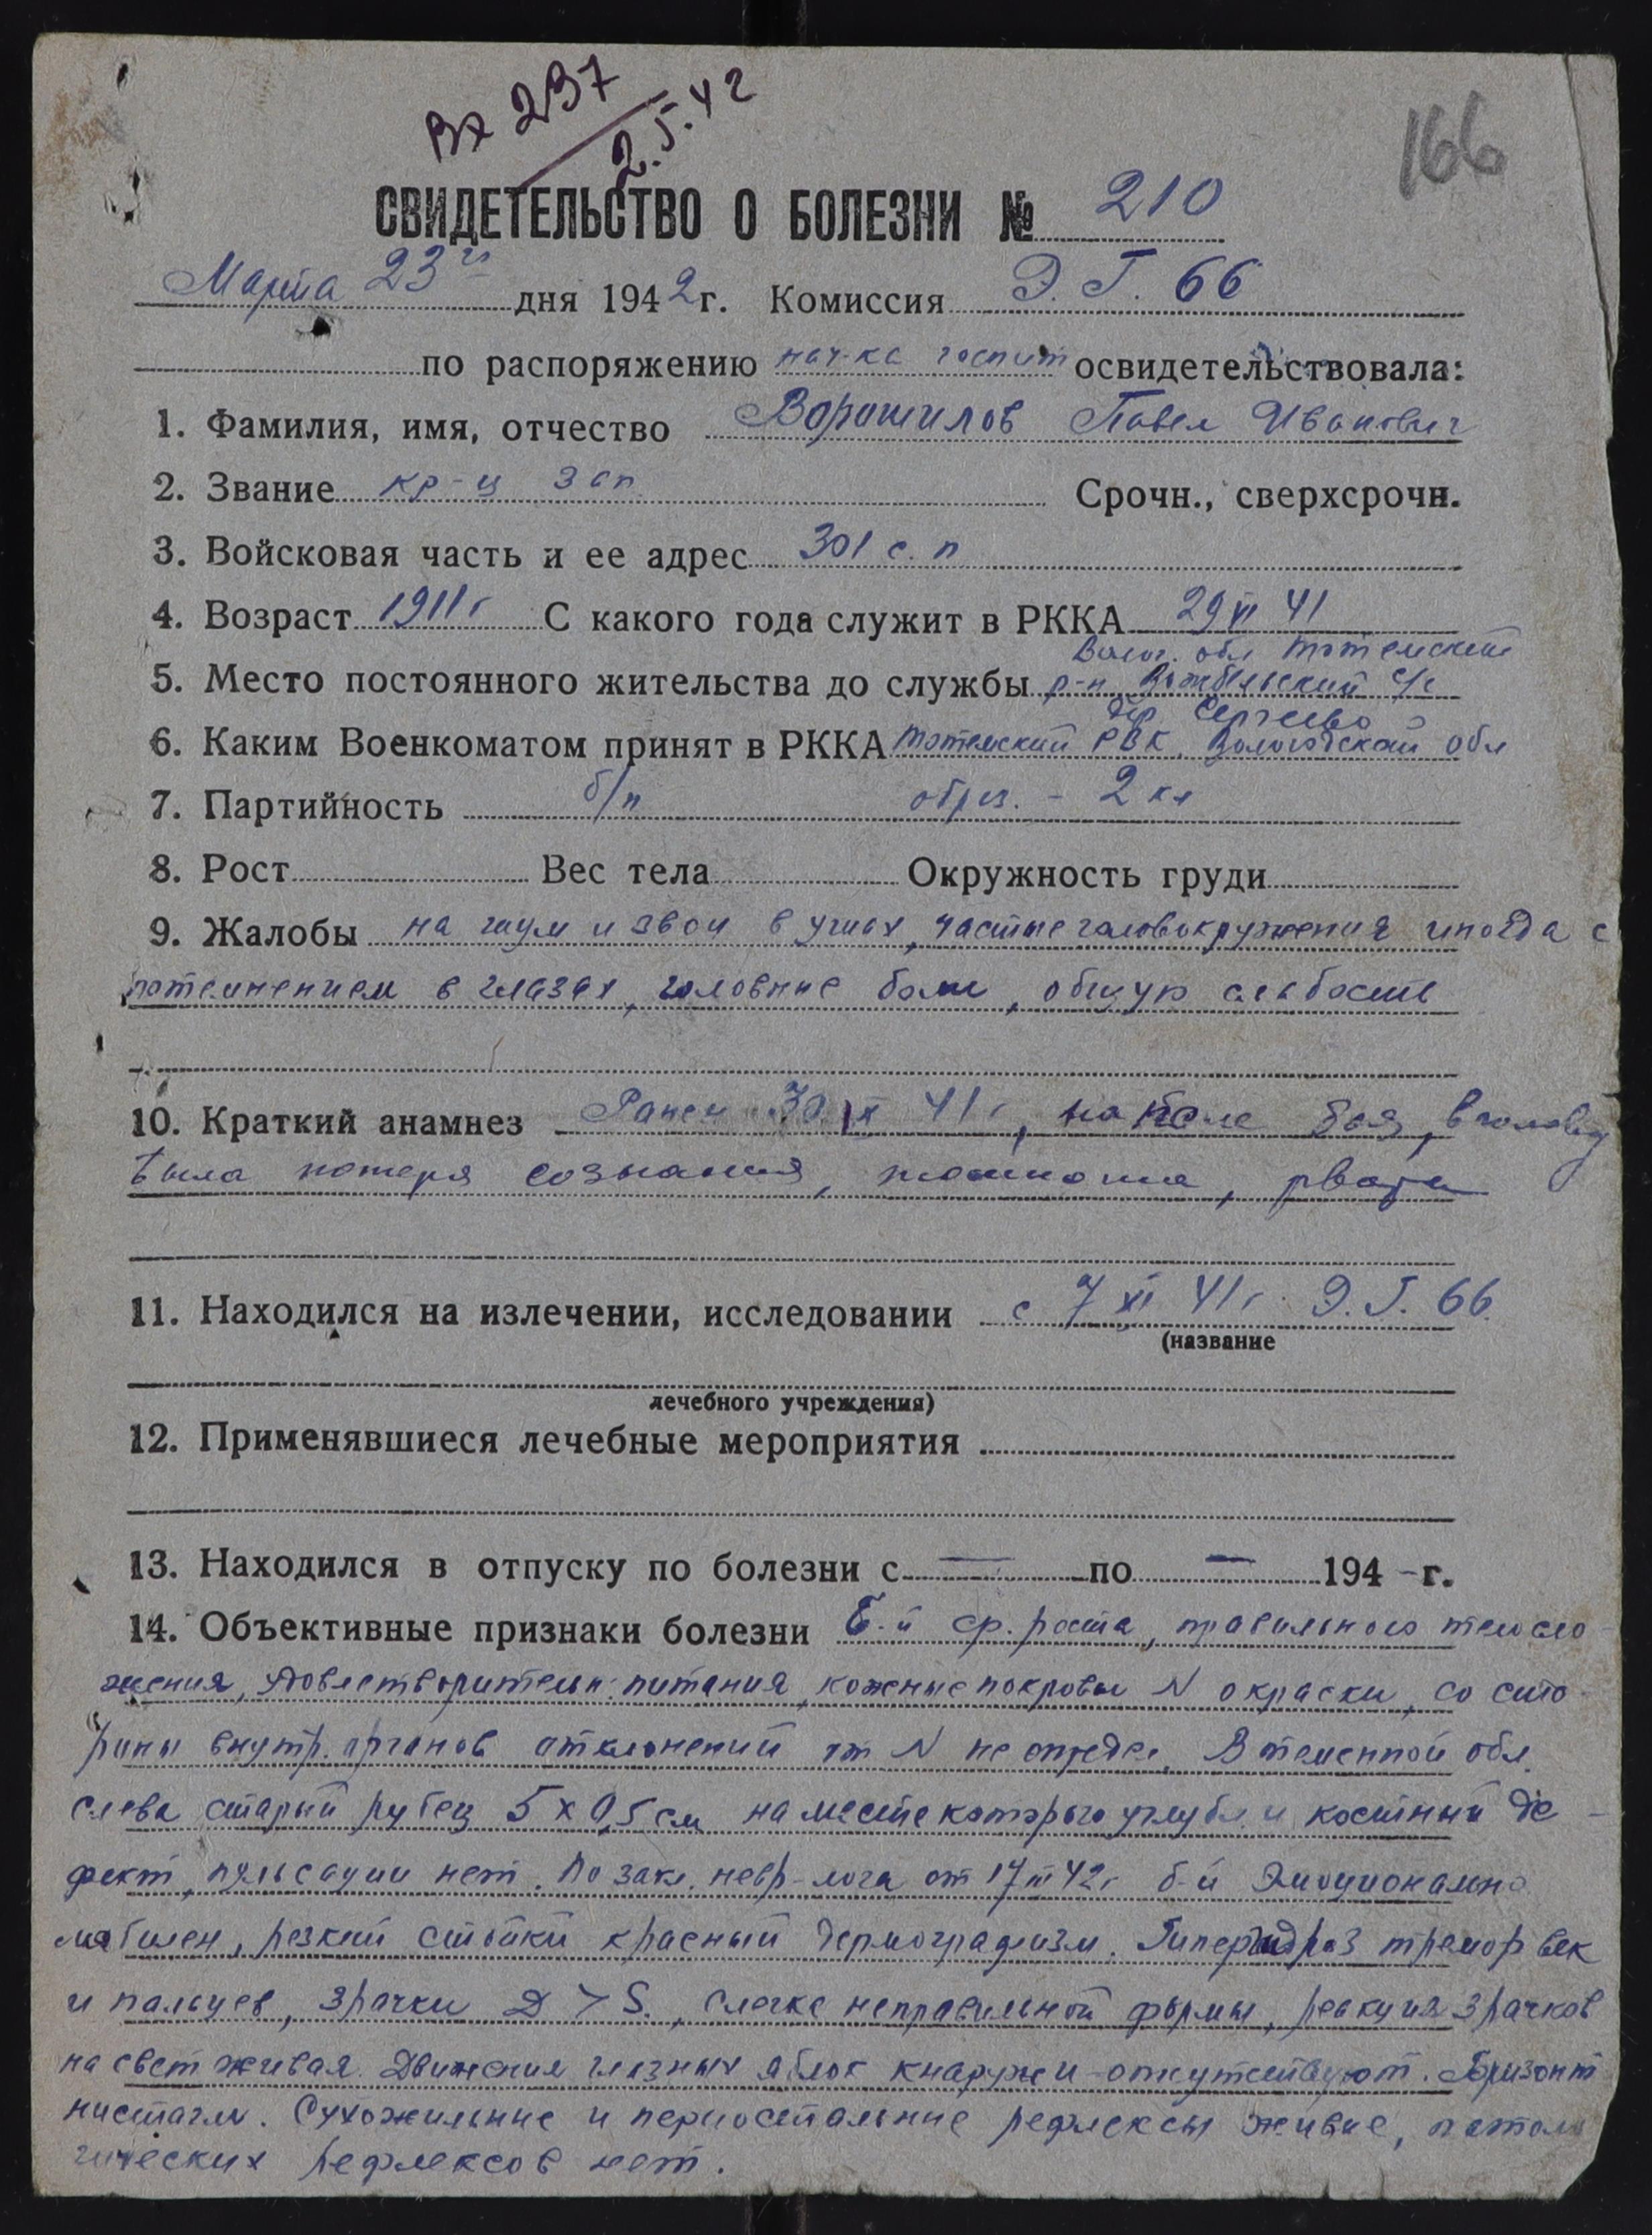 Вх 237
2.5.42
166
СВИДЕТЕЛЬСТВО О БОЛЕЗНИ № 210
Марта 23 дня 1942 г. Комиссия Э.Г. 66
по распоряжению нач-ка госпит освидетельствовала:
1. Фамилия, имя, отчество Ворошилов Павел Иванович
2. Звание кр-ц зап. Срочн., сверхсрочн.
3. Войсковая часть и ее адрес 301 с.п
4. Возраст 1911 г С какого года служит в РККА 29 VI 41
Волог. обл Тотемский
5. Место постоянного жительства до службы р-н с/с
дер. Сергеево
6. Каким Военкоматом принят в РККА Тотемский РВК, Вологодской обл
7. Партийность б/п образ. - 2 кл
8. Рост Вес тела Окружность груди
9. Жалобы на шум и звон в ушах, частые головокружения иногда с
потемнением в глазах, головные боли, общую слабость
10. Краткий анамнез Ранен 30 IX 41 г, на поле боя, в голову
была потеря сознания, тошнота, рвота
11. Находился на излечении, исследовании с 7 XI 41 г. Э.Г. 66.
(название
лечебного учреждения)
12. Применявшиеся лечебные мероприятия
13. Находился в отпуску по болезни с — по — 194 - г.
14. Объективные признаки болезни Б-й ср. роста, правильного тело сло-
жения, удовлетворительн. питания, кожные покровы N окраски, со сто-
роны внутр. органов отклонений от N не опредед. В теменной обл.
слева старый рубец 5 x 0,5 см на месте которого углубл. и костный де-
фект, пульсации нет. По закл. невр-лога от 17 III 42 г б-й Эмоционально
лабилен, резкий стойкий красный дермографизм. Гипергидроз тремор век
и пальцев, зрачки D > S., слегка неправильной формы, реакция зрачков
на свет живая. Движения глазных яблок кнаружи - отсутствуют. Горизонт
нистагм. Сухожильные и периостальные рефлексы живые, патоло
гических рефлексов нет.